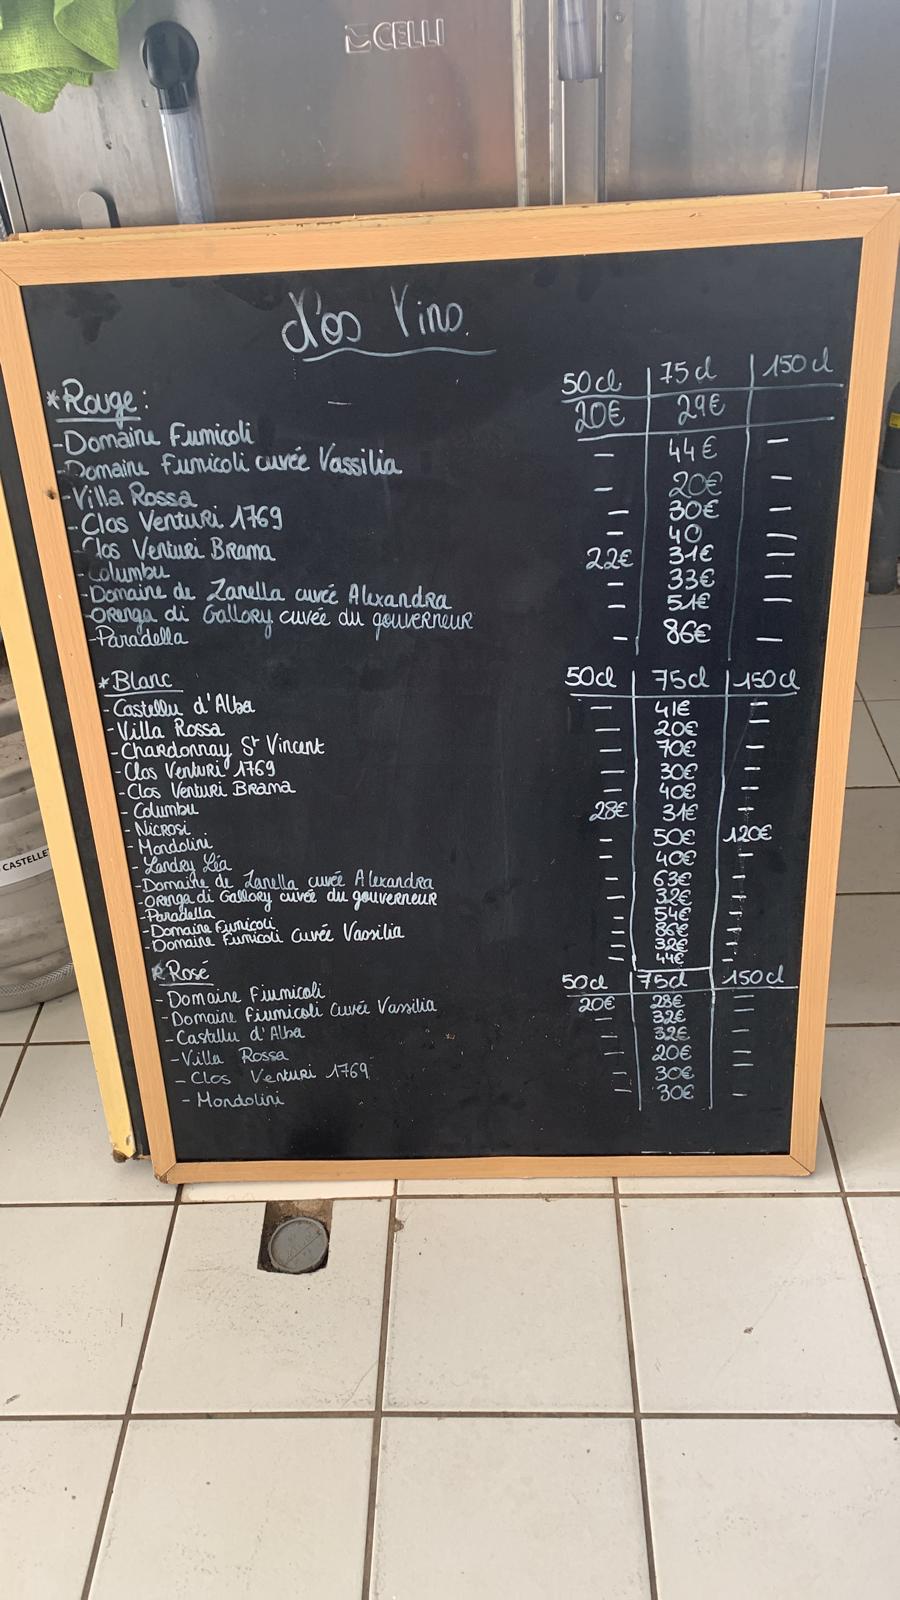 CELLI
d'os Vins
50cl 75cl 150cl
*Rouge:
20€ 29€
-Domaine Fumicoli — 44€ —
-Domaine Fumicoli cuvée Vassilia
-Villa Rossa — 20€ —
-Clos Venturi 1769 — 30€ —
-Clos Venturi Brama — 40 —
-Columbu 22€ 31€ —
-Domaine de Zanella cuvée Alexandra — 33€ —
-Orenga di Gallory cuvée du gouverneur — 51€ —
-Paradella — 86€ —
*Blanc 50cl 75cl 150cl
-Castellu d'Alba — 41€ —
-Villa Rossa — 20€ —
-Chardonnay St Vincent — 70€ —
-Clos Venturi 1769 — 30€ —
-Clos Venturi Brama — 40€ —
-Columbu 28€ 31€ —
-Nicrosi — 50€ 120€
-Mondolini — 40€ —
-Landry Léa — 63€ —
-Domaine de Zanella cuvée Alexandra — 32€ —
-Orenga di Gallory cuvée du gouverneur — 54€ —
-Paradella — 86€ —
-Domaine Fumicoli — 32€ —
-Domaine Fumicoli Cuvée Vassilia — 44€ —
*Rosé 50cl 75cl 150cl
-Domaine Fiumicoli 20€ 28€ —
-Domaine Fiumicoli Cuvée Vassilia — 32€ —
-Castallu d'Alba — 32€ —
-Villa Rossa — 20€ —
-Clos Venturi 1769 — 30€ —
-Mondolini — 30€ —
CASTELLE